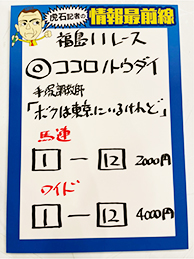 虎石記者の
情報最前線
福島11レース
◎ココロノトウダイ
手塚調教師
「ボクは東京にいるけれど」
馬連
1-12 2000円
ワイド
1-12 4000円